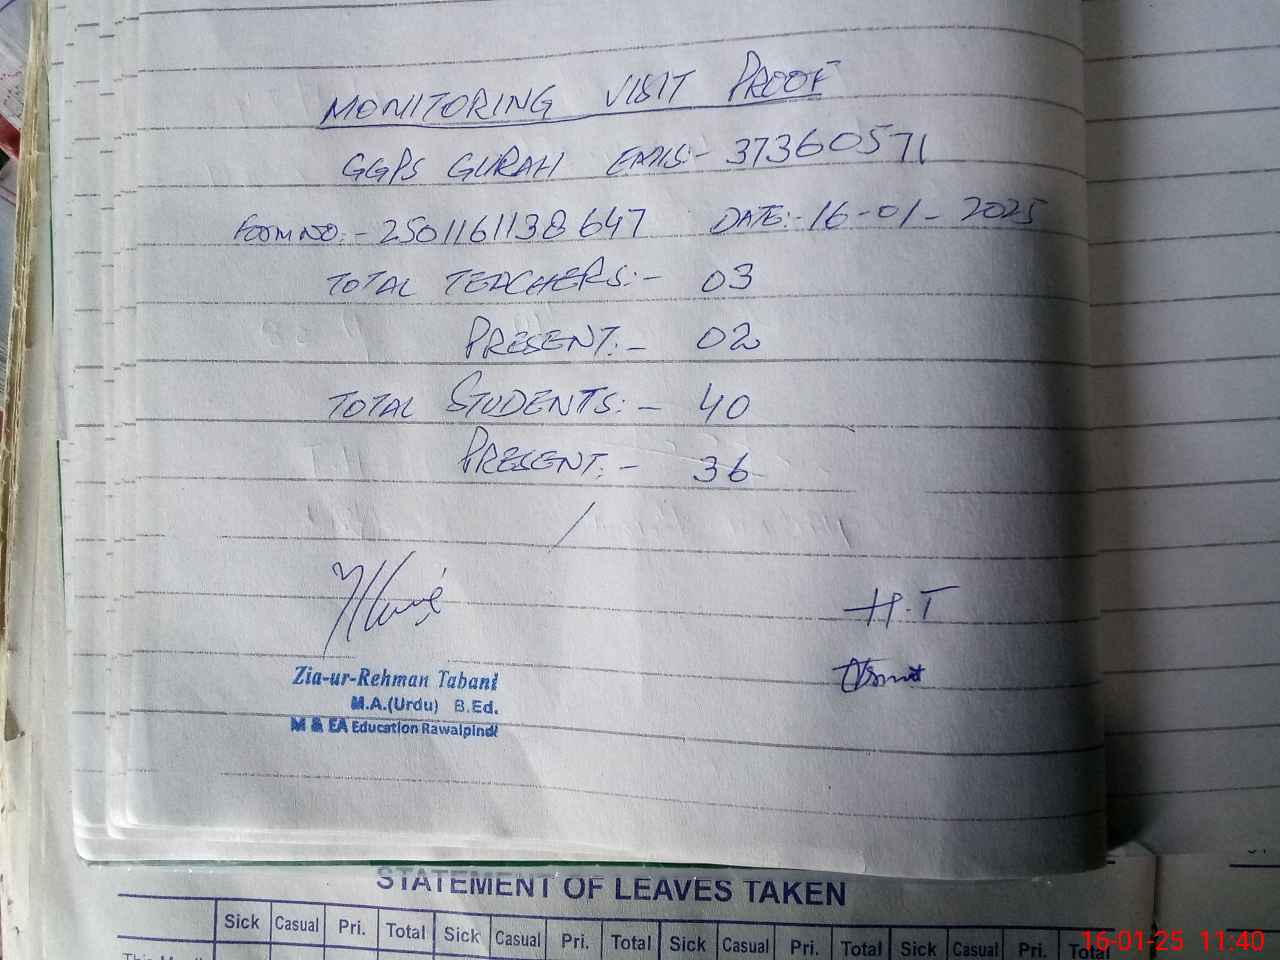 MONITORING VISIT PROOF
GGPS GURAH EMIS:- 37360571
FORM NO:- 2501161138647 DATE:- 16-01-2025
TOTAL TEACHERS:- 03
PRESENT:- 02
TOTAL STUDENTS:- 40
PRESENT:- 36
H.T
Zia-ur-Rehman Tabani
M.A.(Urdu) B.Ed.
M & EA Education Rawalpindi
STATEMENT OF LEAVES TAKEN
Sick Casual Pri. Total Sick Casual Pri. Total Sick Casual Pri. Total Sick Casual Pri. Total
16-01-25 11:40